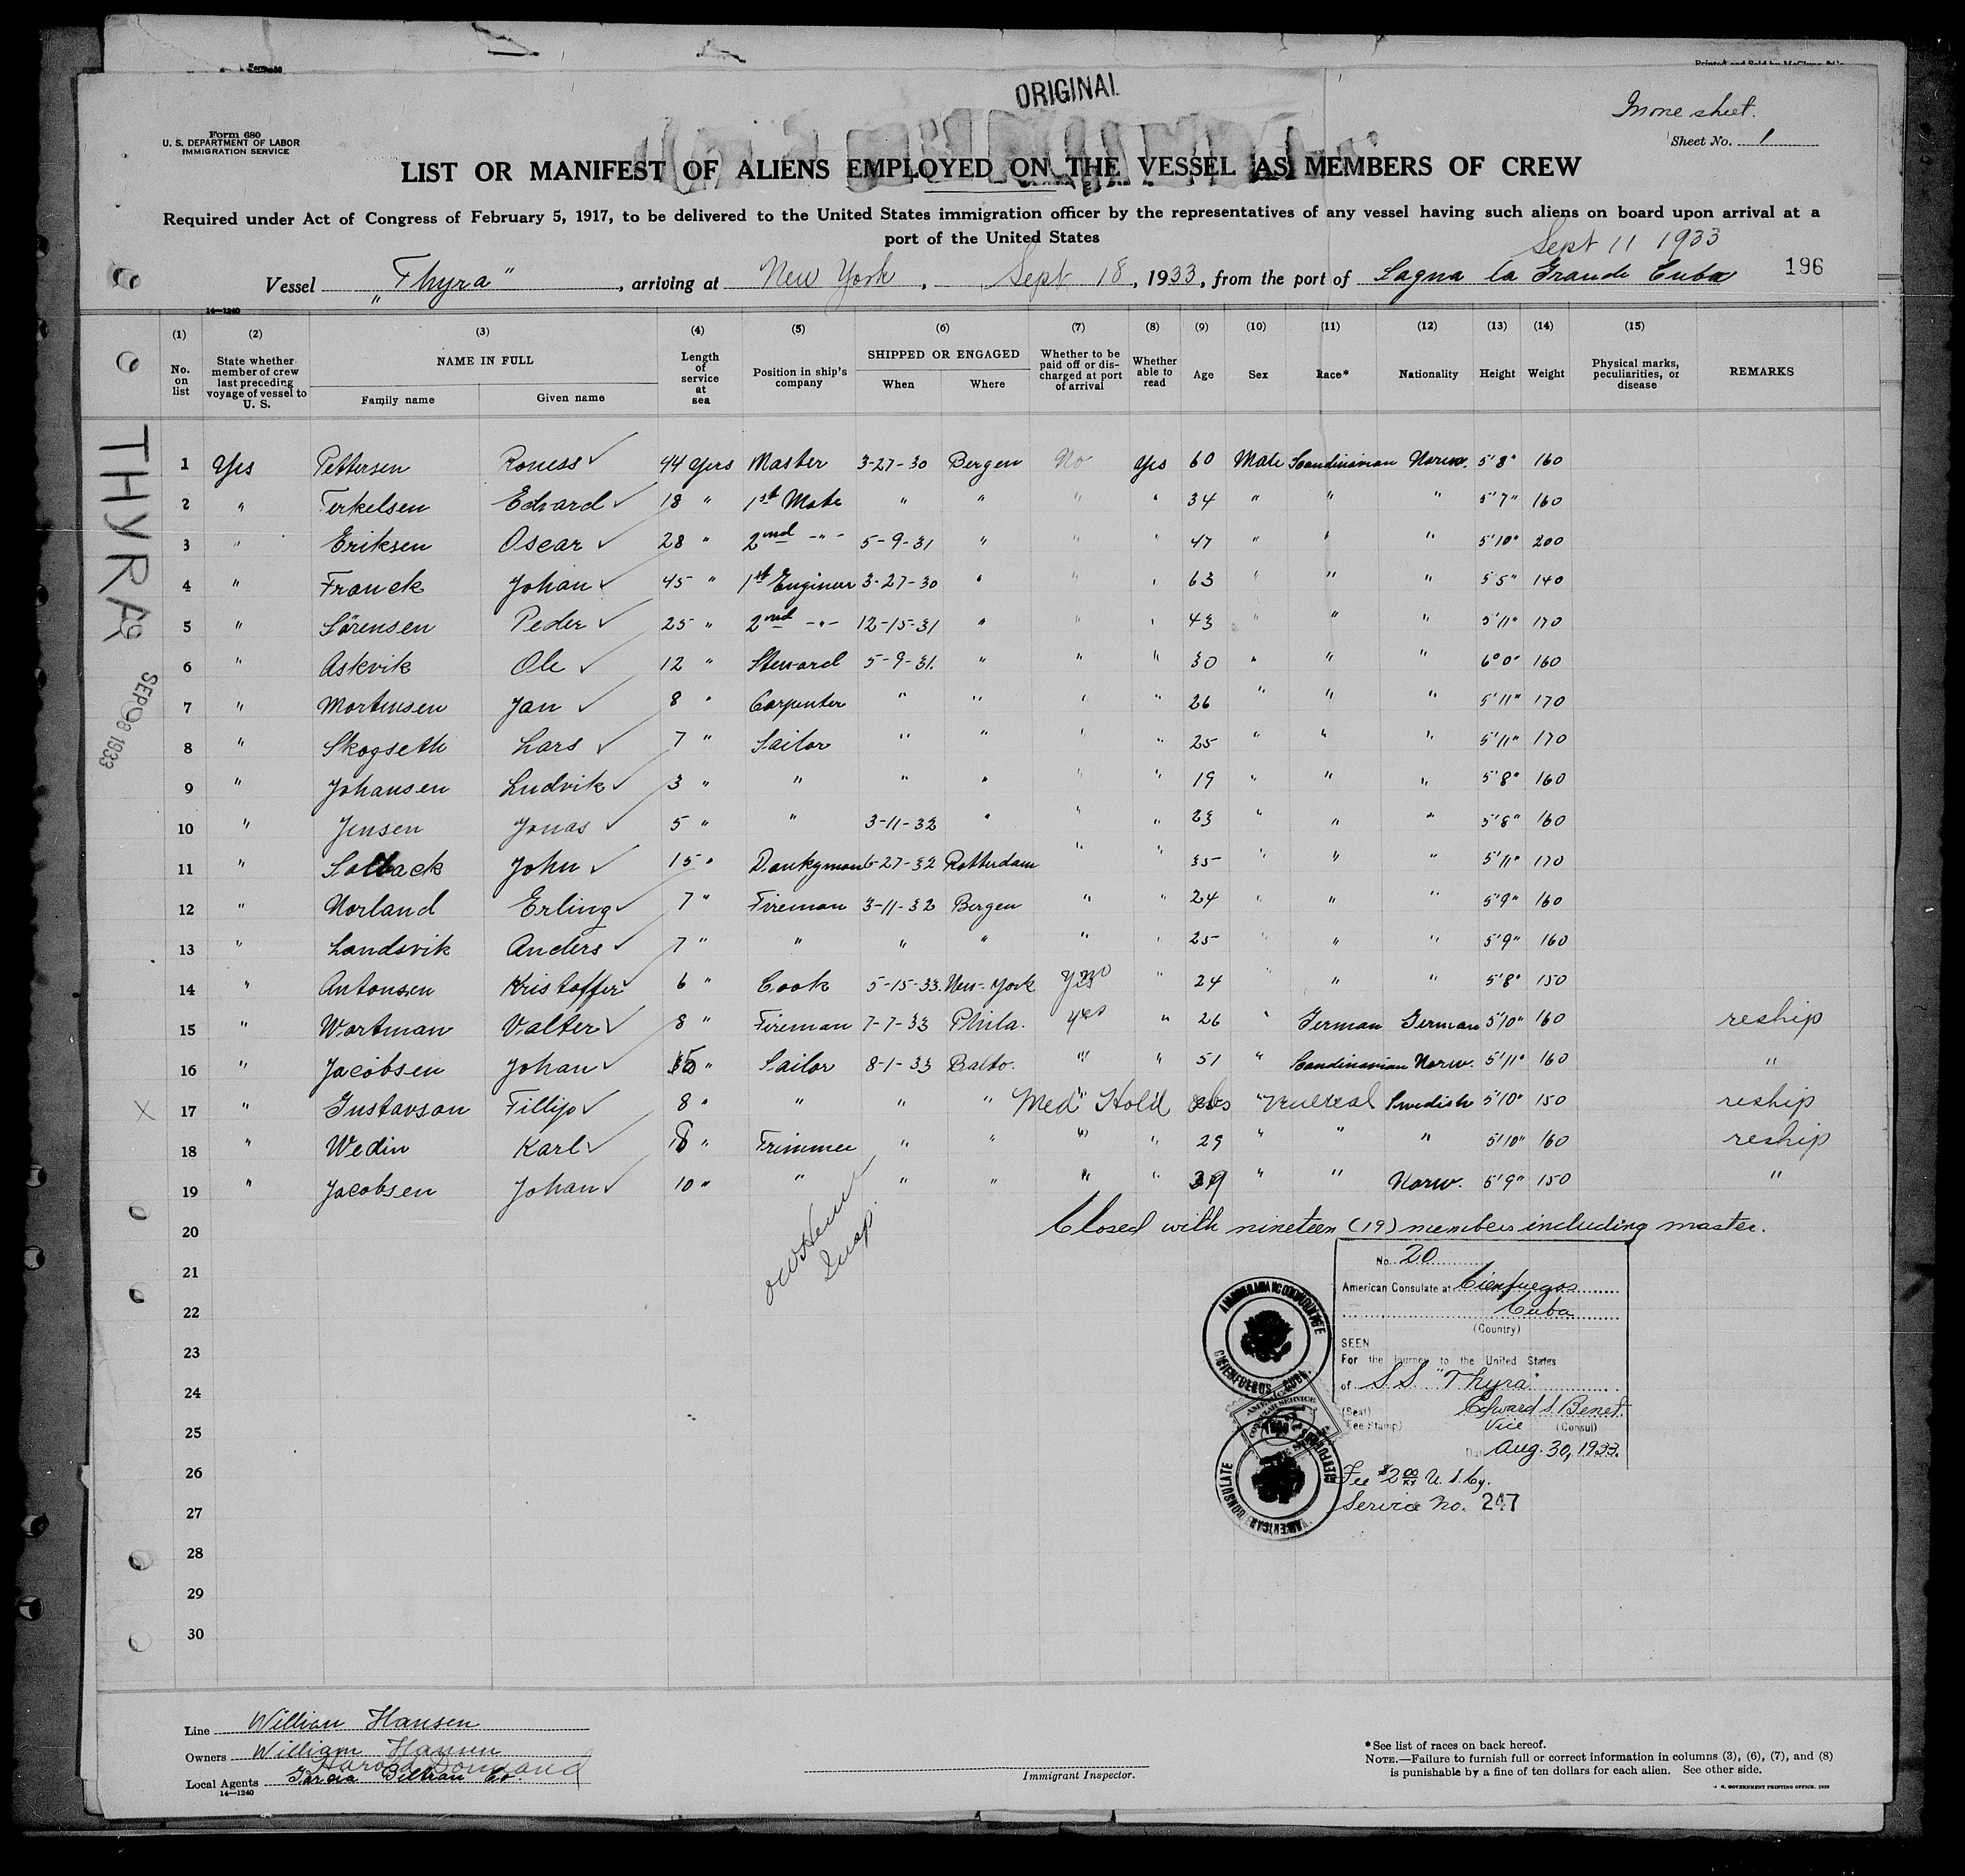 ORIGINAL
In one sheet.
Form 680
U. S. DEPARTMENT OF LABOR
IMMIGRATION SERVICE
Sheet No. 1
LIST OR MANIFEST OF ALIENS EMPLOYED ON THE VESSEL AS MEMBERS OF CREW
Required under Act of Congress of February 5, 1917, to be delivered to the United States immigration officer by the representatives of any vessel having such aliens on board upon arrival at a
port of the United States
Sept 11 1933
Vessel "Thyra", arriving at New York, Sept 18, 1933, from the port of Sagua la Grande Cuba 196
14—1240
(1) (2) (3) (4) (5) (6) (7) (8) (9) (10) (11) (12) (13) (14) (15)
No. on list
State whether member of crew last preceding voyage of vessel to U. S.
NAME IN FULL
Family name Given name
Length of service at sea
Position in ship's company
SHIPPED OR ENGAGED
When Where
Whether to be paid off or discharged at port of arrival
Whether able to read
Age Sex Race* Nationality Height Weight
Physical marks, peculiarities, or disease
REMARKS
THYRA
19
SEP 18 1933
1 Yes Pettersen Roness ✓ 44 yers Master 3-27-30 Bergen No Yes 60 Male Scandinavian Norw. 5'8" 160
2 " Terkelsen Edvard ✓ 18 " 1st Mate " " " " 34 " " " 5'7" 160
3 " Eriksen Oscar ✓ 28 " 2nd -"- 5-9-31 " " " 47 " " " 5'10" 200
4 " Franck Johan ✓ 45 " 1st Engineer 3-27-30 " " " 63 " " " 5'5" 140
5 " Sörensen Peder ✓ 25 " 2nd -"- 12-15-31 " " " 43 " " " 5'11" 170
6 " Askvik Ole ✓ 12 " Steward 5-9-31. " " " 30 " " " 6'0" 160
7 " Mortensen Jan ✓ 8 " Carpenter " " " " 26 " " " 5'11" 170
8 " Skogseth Lars ✓ 7 " Sailor " " " " 25 " " " 5'11" 170
9 " Johansen Ludvik ✓ 3 " " " " " " 19 " " " 5'8" 160
10 " Jensen Jonas ✓ 5 " " 3-11-32 " " " 23 " " " 5'8" 160
11 " Solback John ✓ 15 " Donkyman 6-27-32 Rotterdam " " 35 " " " 5'11" 170
12 " Norland Erling ✓ 7 " Fireman 3-11-32 Bergen " " 24 " " " 5'9" 160
13 " Landsvik Anders ✓ 7 " " " " " " 25 " " " 5'9" 160
14 " Antonsen Kristoffer ✓ 6 " Cook 5-15-33. New-York no " 24 " " " 5'8" 150
15 " Wortman Valter ✓ 8 " Fireman 7-7-33 Phila. yes " 26 " German German 5'10" 160 reship
16 " Jacobsen Johan ✓ 15 " Sailor 8-1-33 Balto. " " 51 " Scandinavian Norw. 5'11" 160 "
X 17 " Gustavson Fillip ✓ 8 " " " " Med Hold " Venereal Swedish 5'10" 150 reship
18 " Wedin Karl ✓ 8 " Trimmer " " " " 29 " " " 5'10" 160 reship
19 " Jacobsen Johan ✓ 10 " " " " " " 39 " " Norw. 5'9" 150 "
20 Closed with nineteen (19) members including master.
Insp
21
22
23
24
25
26
27
28
29
30
No. 20
American Consulate at Cienfuegos
Cuba
(Country)
SEEN
For the journey to the United States
of S S "Thyra"
(Seal) Edward S. Benet
(Fee Stamp) Vice (Consul)
Aug. 30, 1933.
Fee $2.00 U. S. Cy.
Service No. 247
AMERICAN CONSULATE
CIENFUEGOS, CUBA
Line William Hansen
Owners William Hansen
Local Agents Garcia Beltran Co.
14—1240
Immigrant Inspector.
* See list of races on back hereof.
NOTE.—Failure to furnish full or correct information in columns (3), (6), (7), and (8)
is punishable by a fine of ten dollars for each alien. See other side.